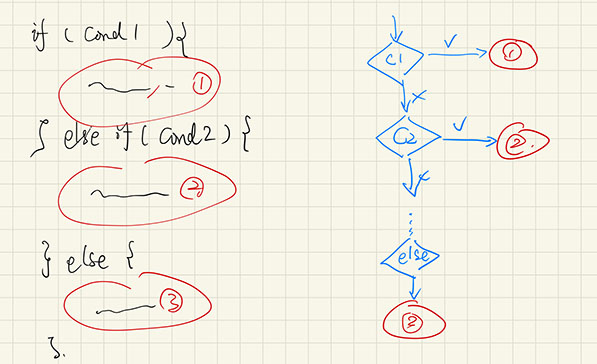 if ( Cond1 ) {
①
} else if ( Cond2 ) {
②
} else {
③
}.
C1
✓
①
×
C2
✓
②
×
else
③